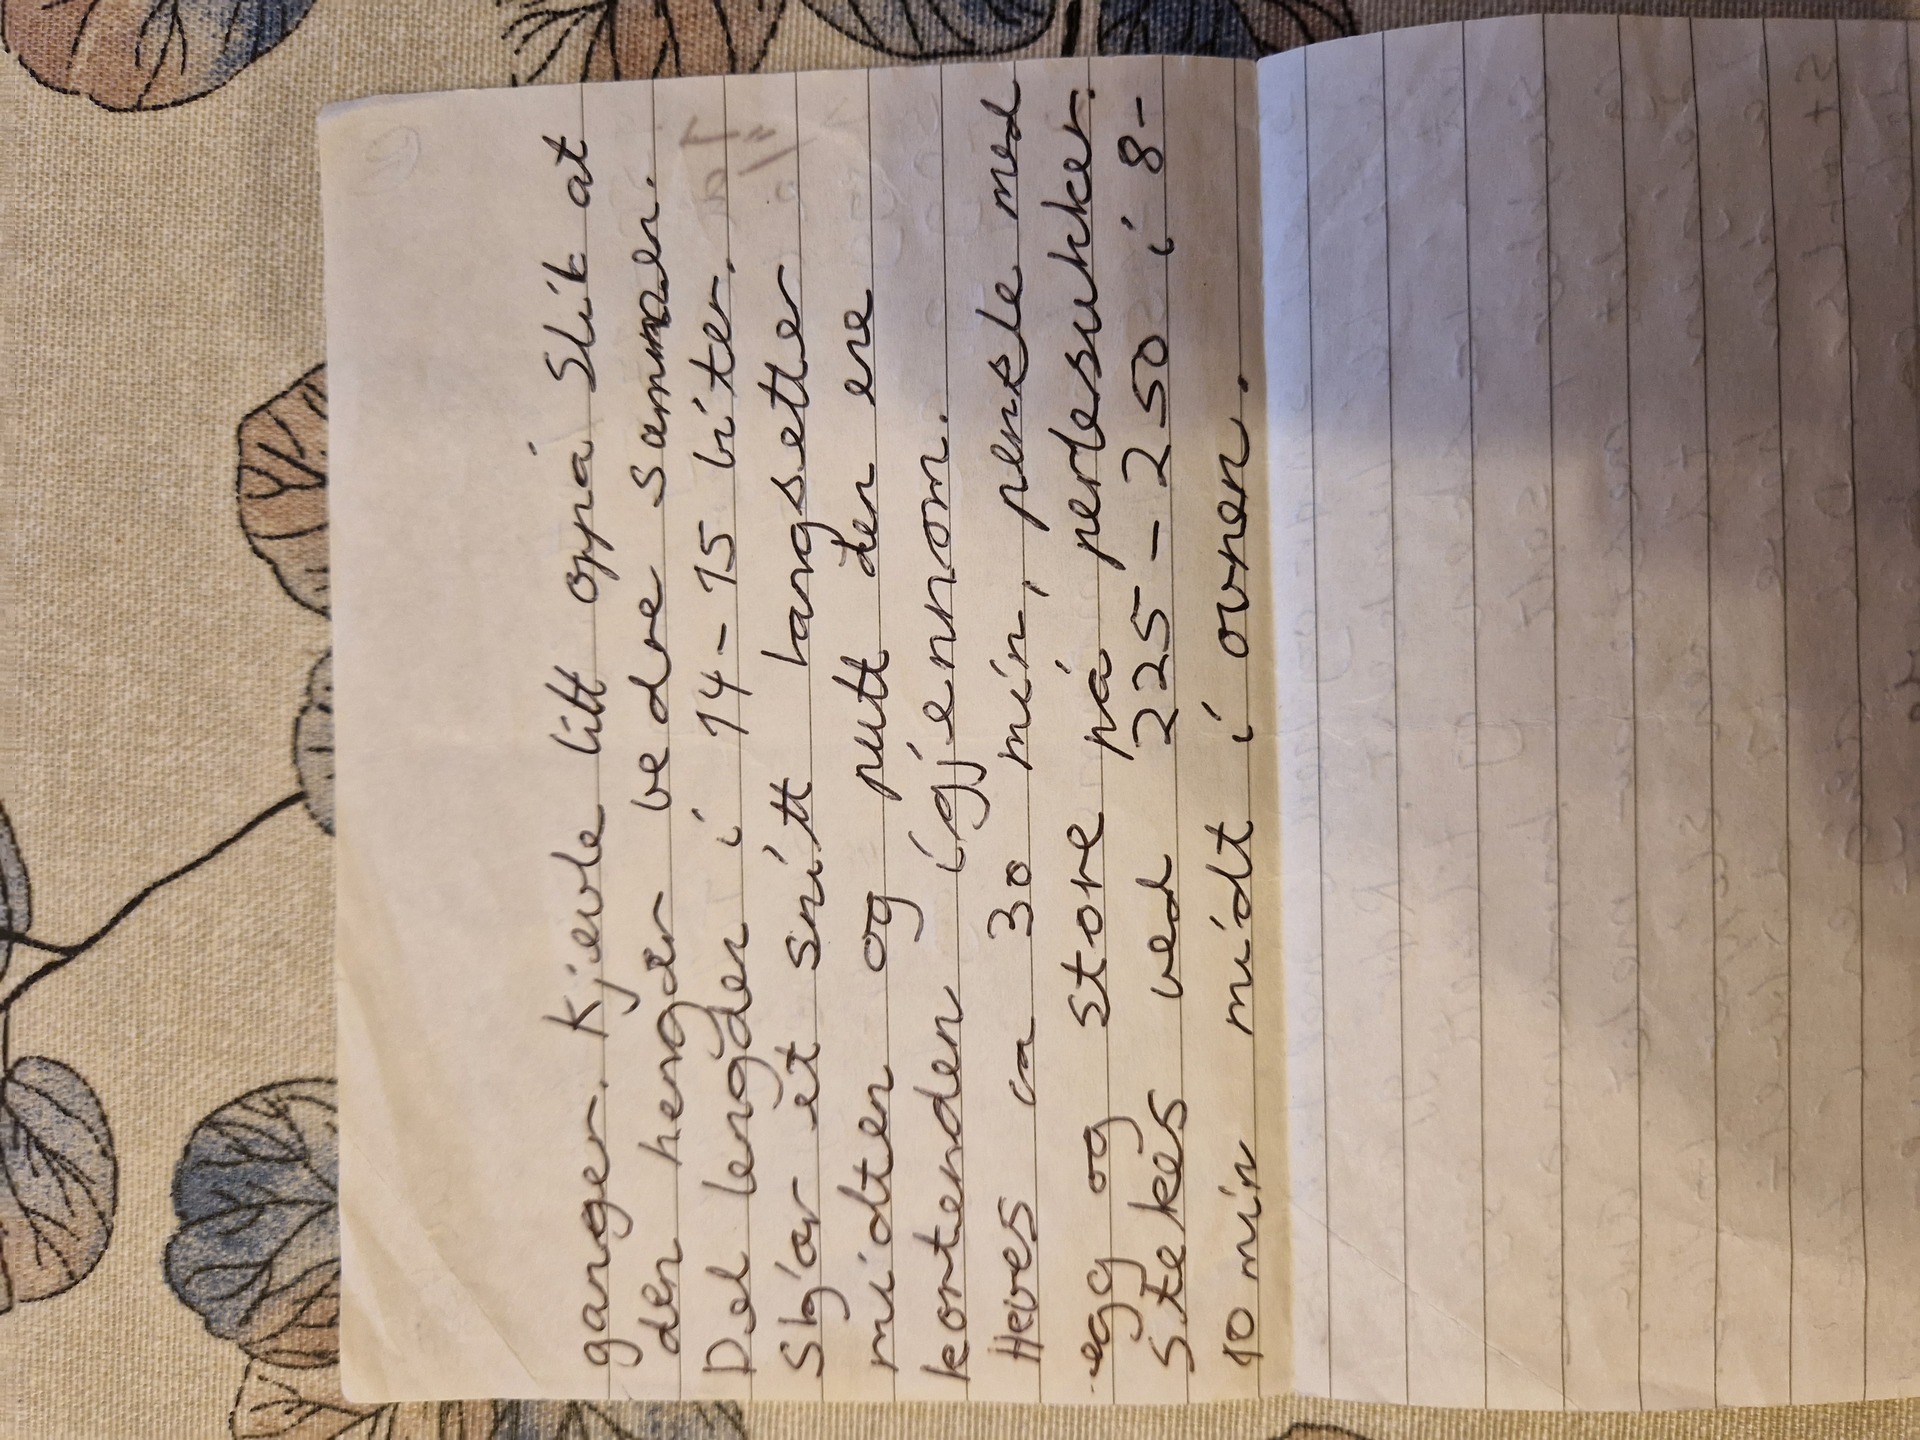 ganger. Kjevle litt oppå Slik at
den henger bedre sammen.
Del lengden i 14-15 biter.
Skjær et snitt langsetter
midten og putt den ene
kortenden igjennom.
Heves ca 30 min, pensle med
egg og støre på perlesukker.
Stekes ved 225-250 i 8-
10 min midt i ovnen.